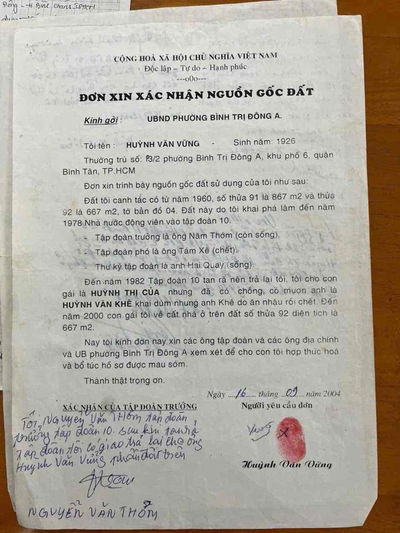 CỘNG HOÀ XÃ HỘI CHỦ NGHĨA VIỆT NAM
Độc lập – Tự do – Hạnh phúc
---o0o---
ĐƠN XIN XÁC NHẬN NGUỒN GỐC ĐẤT
Kính gởi : UBND PHƯỜNG BÌNH TRỊ ĐÔNG A.
Tôi tên : HUỲNH VĂN VỮNG - Sinh năm : 1926
Thường trú số: B3/2 phường Bình Trị Đông A, khu phố 6, quận
Bình Tân, TP.HCM
Đơn xin trình bày nguồn gốc đất sử dụng của tôi như sau:
Đất tôi canh tác có từ năm 1960, số thửa 91 là 867 m2 và thửa
92 là 667 m2, tờ bản đồ 04. Đất này do tôi khai phá làm đến năm
1978 Nhà nước động viên vào tập đoàn 10.
Tập đoàn trưởng là ông Năm Thơm (còn sống).
Tập đoàn phó là ông Tám Xê (chết).
Thư ký tập đoàn là anh Hai Quay (sống).
Đến năm 1982 Tập đoàn 10 tan rã nên trả lại tôi, tôi cho con
gái là HUỲNH THỊ CỦA nhưng đã có chồng, có mượn anh là
HUỲNH VĂN KHÊ khai dùm nhưng anh Khê do ăn nhậu rồi chết. Đến
năm 2000 con gái tôi về cất nhà ở trên đất số thửa 92 diện tích là
667 m2.
Nay tôi kính đơn này xin các ông tập đoàn và các ông địa chính
và UB phường Bình Trị Đông A xem xét để cho con tôi hợp thức hoá
và bổ túc hồ sơ được mau sớm.
Thành thật trọng ơn.
Ngày 16 tháng 09 năm 2004
XÁC NHẬN CỦA TẬP ĐOÀN TRƯỞNG Người yêu cầu đơn
Tôi, Nguyễn Văn Thơm tập đoàn
trưởng tập đoàn 10. sau khi tan rã
tập đoàn tôi có giao trả lại cho ông
Huỳnh Văn Vững phần đất trên
Vững
Huỳnh Văn Vững
NGUYỄN VĂN THƠM